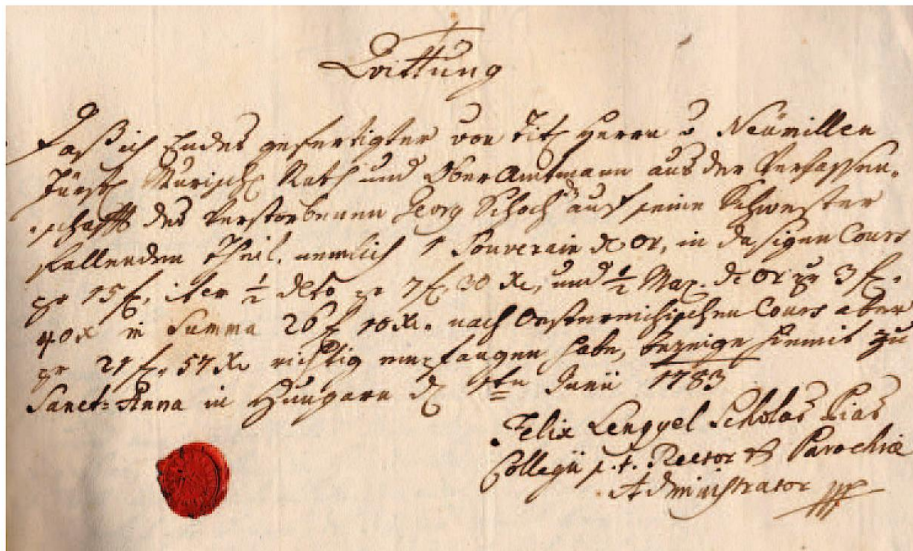 Quittung
Daß ich Endes gefertigter von Tit. Herrn v. Neümillen
Fürstl. Murisch. Rath und Ober Amtmann aus der Verlassen-
schafft des Verstorbenen Georg Schoch auf seine Schwester
fallenden Theil, nemlich 1 Souverain d'Or, in dasigen Cours
pr 15 f., item ½ deto pr 7 f. 30 x., und ½ Max. d'Or pr 3 f.
40 x in Summa 26 f 10 x. nach Oesterreichischen Cours aber
pr 21 f. 57 x richtig empfangen habe, bezeige hiemit zu
Sanct-Anna in Hungarn d. 1ten Junii 1783
Felix Lengyel Scholas Pias
Collegii p. t. Rector & Parochiæ
Administrator